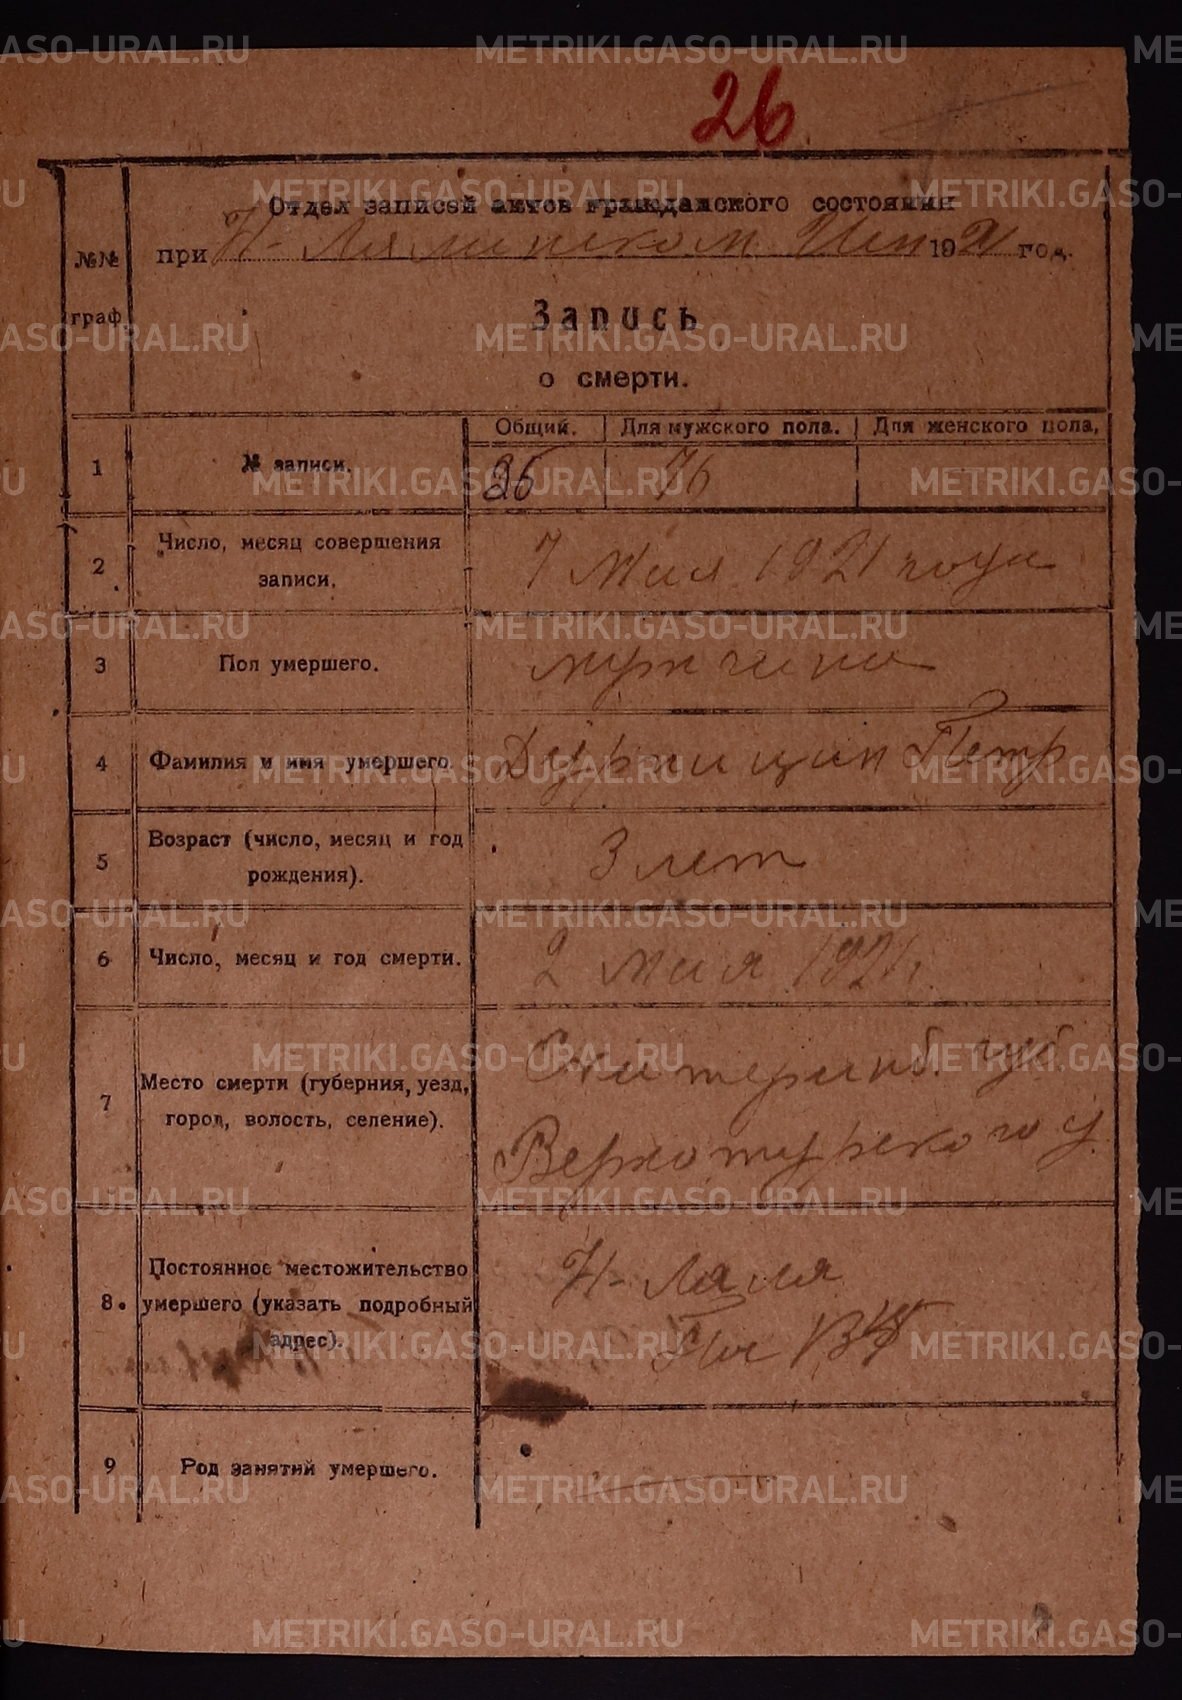 26
Отдел записей актов гражданского состояния
№№ граф.
при Н-Лялинском 1921 год.
Запись
о смерти.
Общий. Для мужского пола. Для женского пола.
1 № записи. 26
2 Число, месяц совершения записи. 7 Мая 1921 года
3 Пол умершего. мужчина
4 Фамилия и имя умершего. Петр
5 Возраст (число, месяц и год рождения). 3 лет
6 Число, месяц и год смерти. 2 мая 1921г.
7 Место смерти (губерния, уезд, город, волость, селение). Екатеринб. губ.
Верхотурского у.
8. Постоянное местожительство умершего (указать подробный адрес). Н-Ляля
9 Род занятий умершего.
METRIKI.GASO-URAL.RU